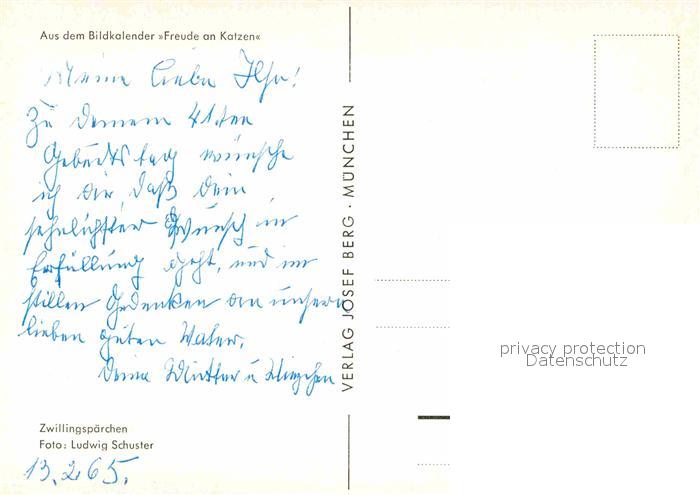 Aus dem Bildkalender »Freude an Katzen«
Meine liebe Ilse!
Zu Deinem 41.ten
Gebūrtstag wünsche
ich Dir, daß Dein
sehnlichster Wunsch in
Erfüllung geht, und im
stillen Gedenken an unsern
lieben guten Vater.
Deine Mutter u.
VERLAG JOSEF BERG · MÜNCHEN
Zwillingspärchen
Foto: Ludwig Schuster
13.2.65.
privacy protection
Datenschutz